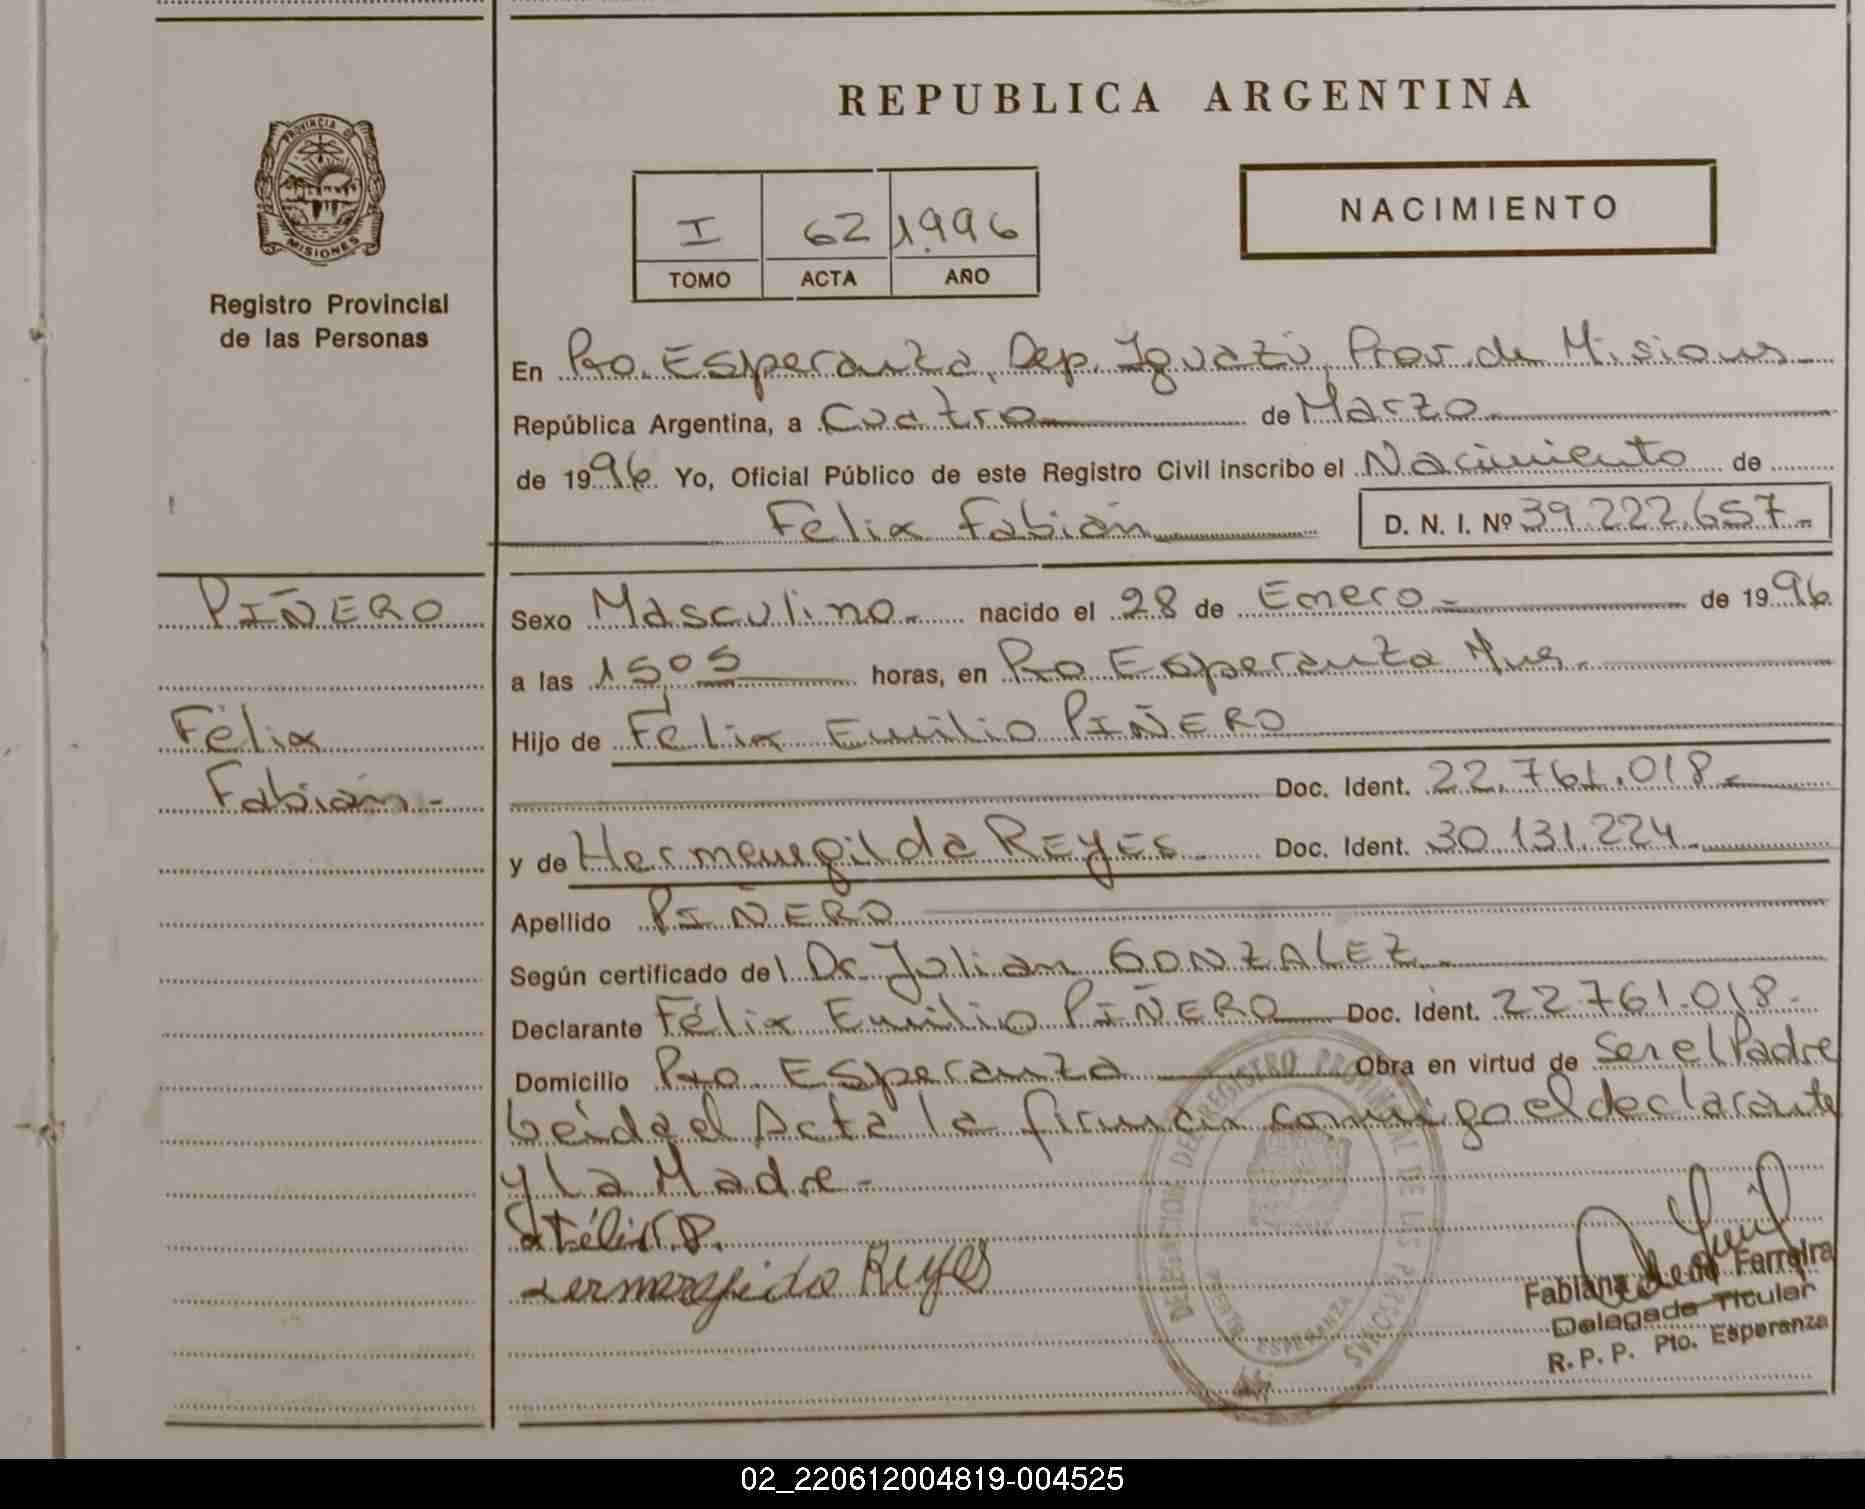 REPUBLICA ARGENTINA
PROVINCIA DE
MISIONES
Registro Provincial
de las Personas
I 62 1996
TOMO ACTA AÑO
NACIMIENTO
En Pto. Esperanza, Dep. Iguazú, Prov. de Misiones
República Argentina, a Cuatro de Marzo
de 1996 Yo, Oficial Público de este Registro Civil inscribo el Nacimiento de
Félix Fabián D. N. I. Nº 39.222.657.-
PIÑERO
Félix
Fabián.-
Sexo Masculino.- nacido el 28 de Enero.- de 1996
a las 15,05 horas, en Pto Esperanza Mnes.
Hijo de Félix Emilio PIÑERO
Doc. Ident. 22.761.018.-
y de Hermenegilda REYES.- Doc. Ident. 30.131.224.-
Apellido PIÑERO
Según certificado del Dr. Julian GONZALEZ.-
Declarante Félix Emilio PIÑERO Doc. Ident. 22.761.018.-
Domicilio Pto. Esperanza Obra en virtud de Ser el Padre
Leída el Acta la firman conmigo el declarante
y La Madre.-
Félix P.
Reyes
DELEGACION DE REGISTRO PROVINCIAL DE LAS PERSONAS
PUERTO ESPERANZA
Fabiana Ferreira
Delegada Titular
R. P. P. Pto. Esperanza
02_220612004819-004525